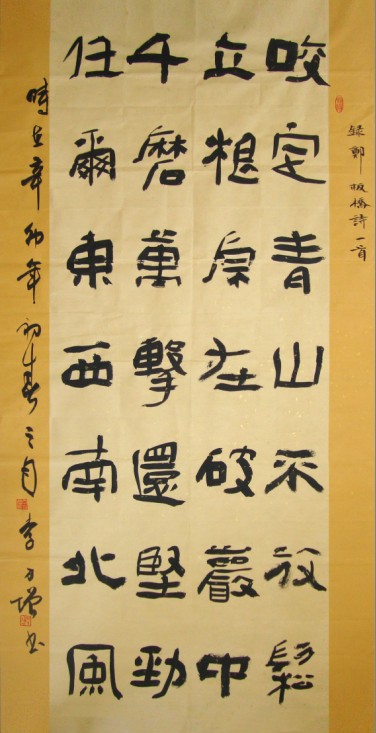 錄鄭板橋詩一首
咬定青山不放鬆
立根原在破巖中
千磨萬擊還堅勁
任爾東西南北風
時在辛卯年初春之月 李 增书